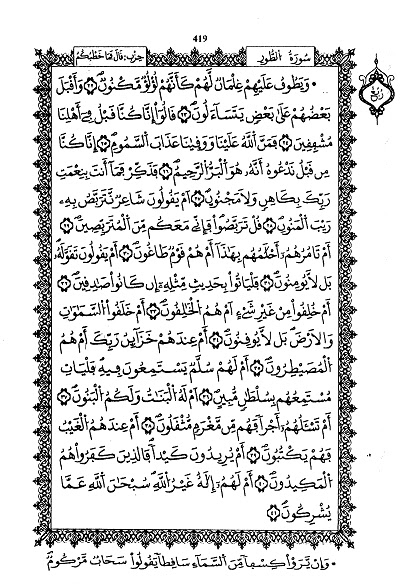 419
سُورَةُ الطُّورِ
حِزْب: قَالَ فَمَا خَطْبُكُمْ
رُبُع
وَيَطُوفُ عَلَيْهِمْ غِلْمَانٌ لَّهُمْ كَأَنَّهُمْ لُؤْلُؤٌ مَّكْنُونٌ وَأَقْبَلَ
بَعْضُهُمْ عَلَىٰ بَعْضٍ يَتَسَاءَلُونَ قَالُوا إِنَّا كُنَّا قَبْلُ فِي أَهْلِنَا
مُشْفِقِينَ فَمَنَّ اللَّهُ عَلَيْنَا وَوَقَيٰنَا عَذَابَ السَّمُومِ إِنَّا كُنَّا
مِن قَبْلُ نَدْعُوهُ أَنَّهُ هُوَ الْبَرُّ الرَّحِيمُ فَذَكِّرْ فَمَا أَنتَ بِنِعْمَتِ
رَبِّكَ بِكَاهِنٍ وَلَا مَجْنُونٍ أَمْ يَقُولُونَ شَاعِرٌ نَّتَرَبَّصُ بِهِ
رَيْبَ الْمَنُونِ قُلْ تَرَبَّصُوا فَإِنِّي مَعَكُم مِّنَ الْمُتَرَبِّصِينَ
أَمْ تَامُرُهُمْ أَحْلَٰمُهُم بِهَٰذَا أَمْ هُمْ قَوْمٌ طَاغُونَ أَمْ يَقُولُونَ تَقَوَّلَهُ
بَل لَّا يُومِنُونَ فَلْيَاتُوا بِحَدِيثٍ مِّثْلِهِ إِن كَانُوا صَٰدِقِينَ
أَمْ خُلِقُوا مِنْ غَيْرِ شَيْءٍ أَمْ هُمُ الْخَٰلِقُونَ أَمْ خَلَقُوا السَّمَٰوَٰتِ
وَالْأَرْضَ بَل لَّا يُوقِنُونَ أَمْ عِندَهُمْ خَزَائِنُ رَبِّكَ أَمْ هُمُ
الْمُصَيْطِرُونَ أَمْ لَهُمْ سُلَّمٌ يَسْتَمِعُونَ فِيهِ فَلْيَاتِ
مُسْتَمِعُهُم بِسُلْطَٰنٍ مُّبِينٍ أَمْ لَهُ الْبَنَٰتُ وَلَكُمُ الْبَنُونَ
أَمْ تَسْـَٔلُهُمْ أَجْرًا فَهُم مِّن مَّغْرَمٍ مُّثْقَلُونَ أَمْ عِندَهُمُ الْغَيْبُ
فَهُمْ يَكْتُبُونَ أَمْ يُرِيدُونَ كَيْدًا فَالَّذِينَ كَفَرُوا هُمُ
الْمَكِيدُونَ أَمْ لَهُمْ إِلَٰهٌ غَيْرُ اللَّهِ سُبْحَٰنَ اللَّهِ عَمَّا
يُشْرِكُونَ
وَإِن يَرَوْا كِسْفًا مِّنَ السَّمَاءِ سَاقِطًا يَقُولُوا سَحَابٌ مَّرْكُومٌ